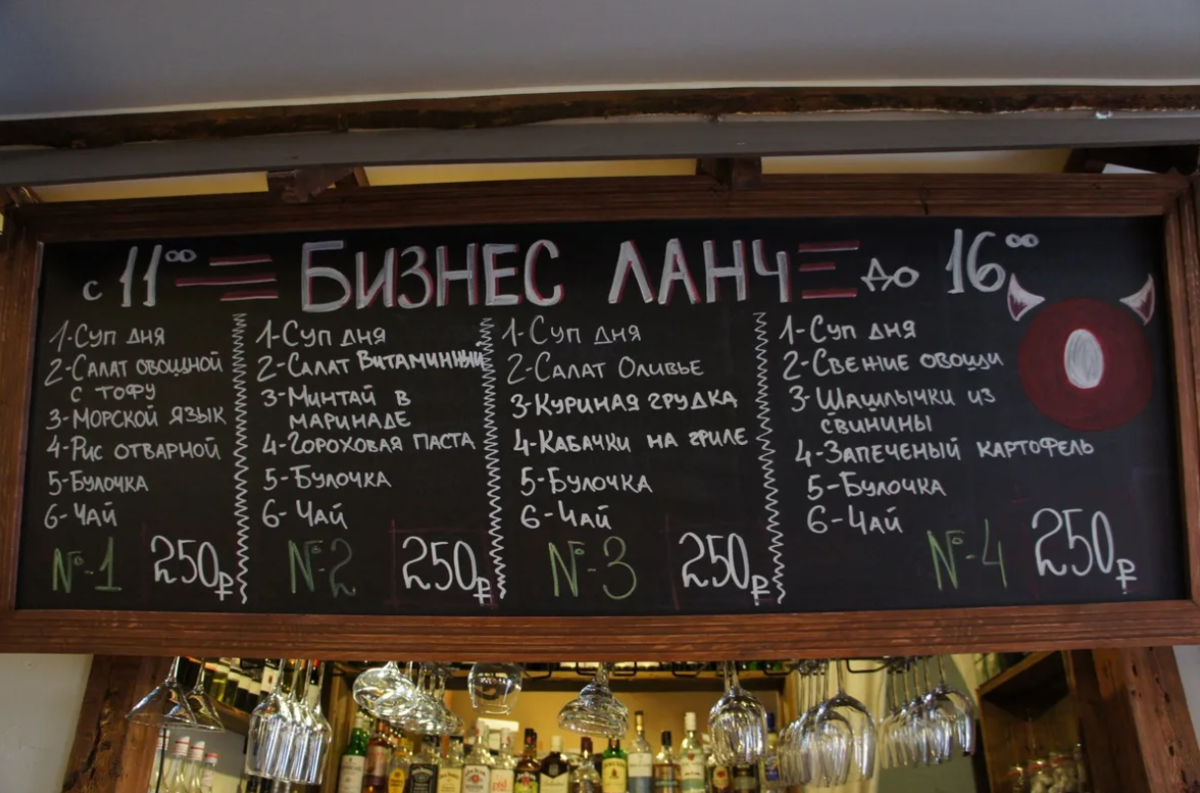 с 11⁰⁰ БИЗНЕС ЛАНЧ до 16⁰⁰
1-Суп дня
2-Салат овощной
с тофу
3-Морской язык
4-Рис отварной
5-Булочка
6-Чай
№-1 250₽
1-Суп дня
2-Салат Витаминный
3-Минтай в
маринаде
4-Гороховая паста
5-Булочка
6-Чай
№-2 250₽
1-Суп дня
2-Салат Оливье
3-Куриная грудка
4-Кабачки на гриле
5-Булочка
6-Чай
№-3 250₽
1-Суп дня
2-Свежие овощи
3-Шашлычки из
свинины
4-Запеченый картофель
5-Булочка
6-Чай
№-4 250₽